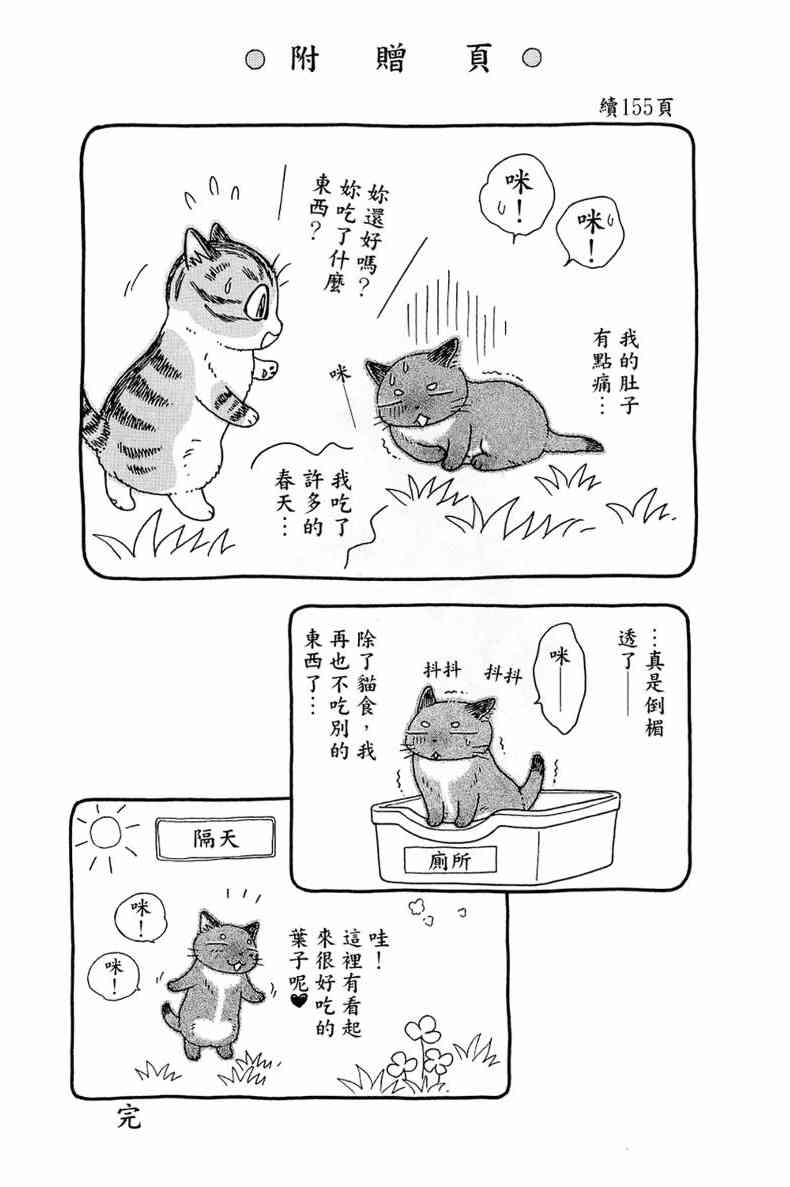 附贈頁
續155頁
咪！
咪！
我的肚子
有點痛…
妳還好嗎？
妳吃了什麼
東西？
咪
我吃了
許多的
春天…
…真是倒楣
透了——
咪——
抖抖
抖抖
除了貓食，我
再也不吃別的
東西了…
廁所
隔天
哇！
這裡有看起
來很好吃的
葉子呢♥
咪！
咪！
完